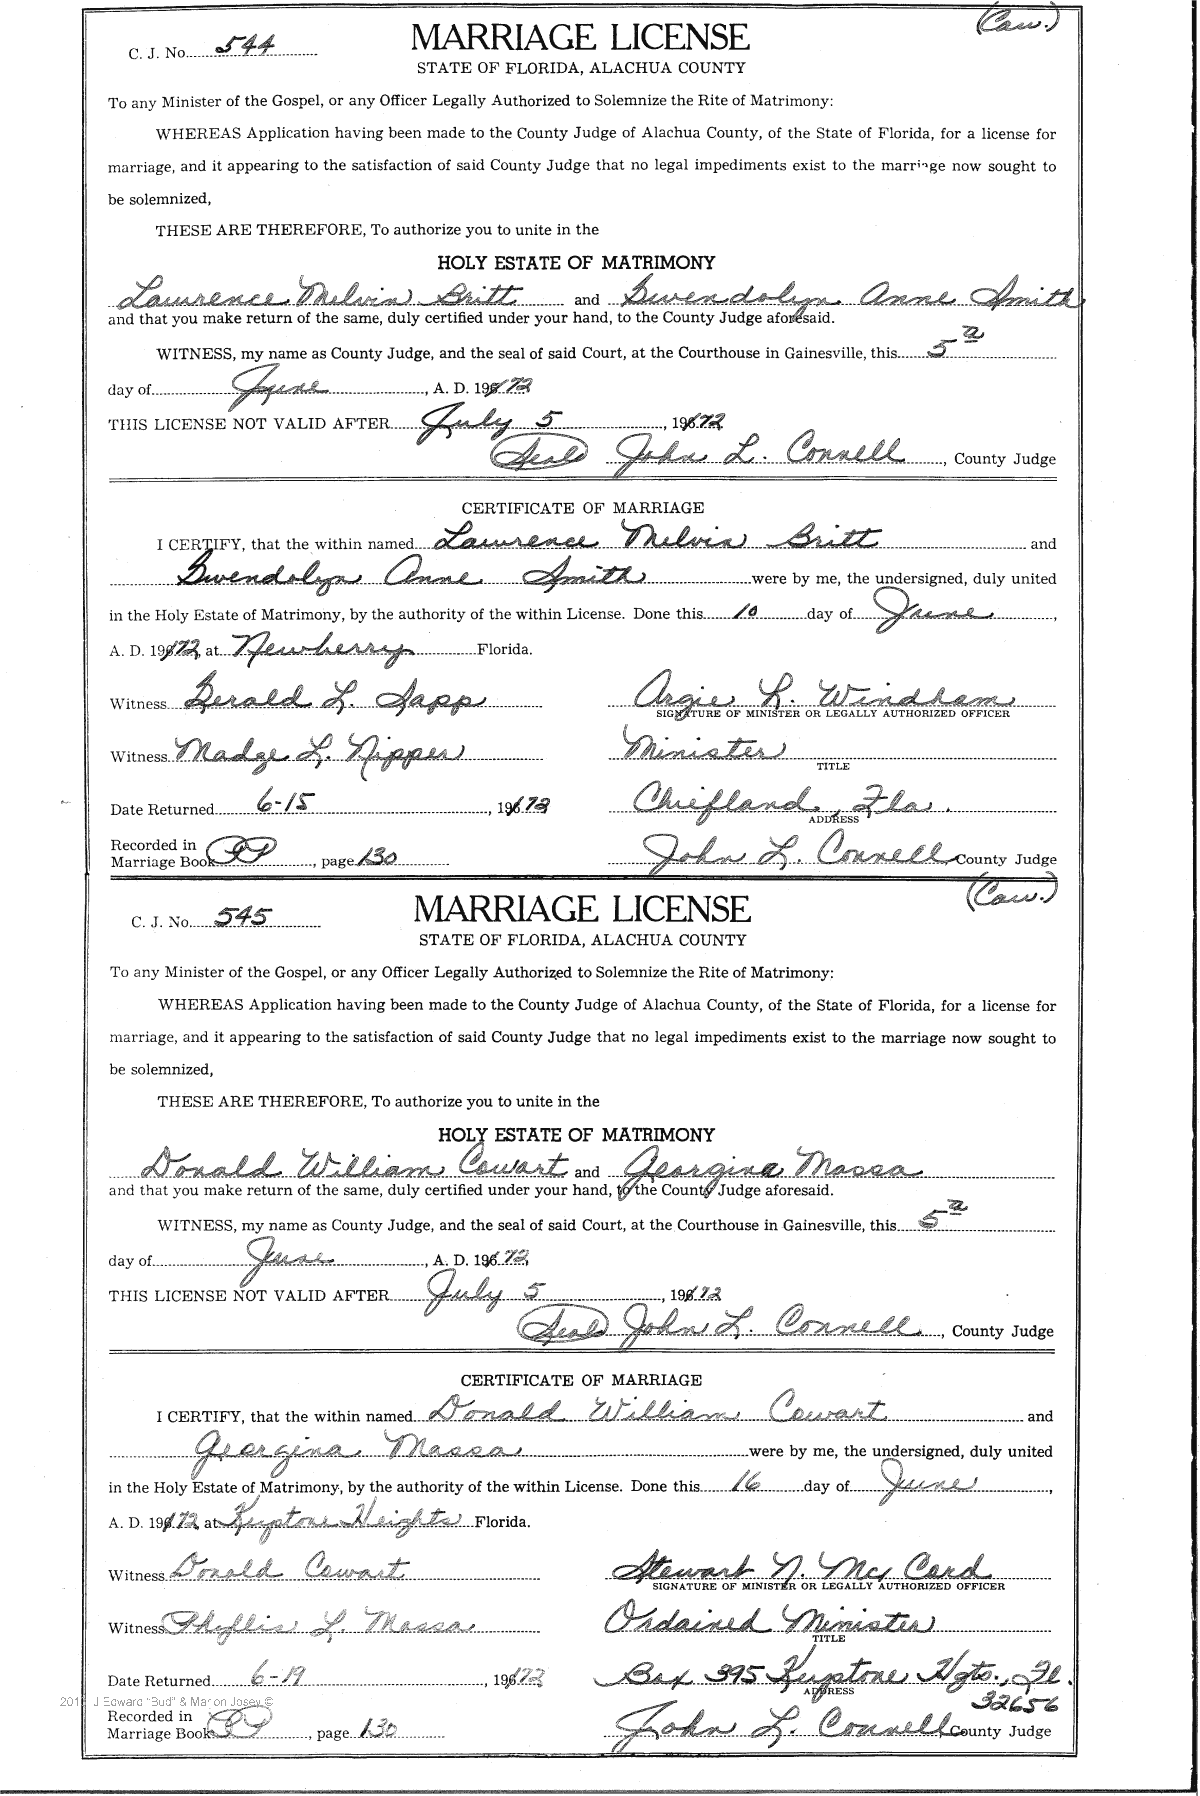 (Cau.)
C. J. No. 544 MARRIAGE LICENSE
STATE OF FLORIDA, ALACHUA COUNTY
To any Minister of the Gospel, or any Officer Legally Authorized to Solemnize the Rite of Matrimony:
WHEREAS Application having been made to the County Judge of Alachua County, of the State of Florida, for a license for
marriage, and it appearing to the satisfaction of said County Judge that no legal impediments exist to the marriage now sought to
be solemnized,
THESE ARE THEREFORE, To authorize you to unite in the
HOLY ESTATE OF MATRIMONY
Lawrence Melvin Britt and Gwendolyn Anne Smith
and that you make return of the same, duly certified under your hand, to the County Judge aforesaid.
WITNESS, my name as County Judge, and the seal of said Court, at the Courthouse in Gainesville, this 5
day of June, A. D. 1972
THIS LICENSE NOT VALID AFTER July 5, 1972
(Seal) John L. Connell, County Judge
CERTIFICATE OF MARRIAGE
I CERTIFY, that the within named Lawrence Melvin Britt and
Gwendolyn Anne Smith were by me, the undersigned, duly united
in the Holy Estate of Matrimony, by the authority of the within License. Done this 10 day of June,
A. D. 1972, at Newberry Florida.
Witness Gerald L. Sapp Argie L. Windham
SIGNATURE OF MINISTER OR LEGALLY AUTHORIZED OFFICER
Witness Madge L. Nipper Minister
TITLE
Date Returned 6-15, 1972 Chiefland, Fla.
ADDRESS
Recorded in
Marriage Book, page 130 John L. Connell County Judge
(Cau.)
C. J. No. 545 MARRIAGE LICENSE
STATE OF FLORIDA, ALACHUA COUNTY
To any Minister of the Gospel, or any Officer Legally Authorized to Solemnize the Rite of Matrimony:
WHEREAS Application having been made to the County Judge of Alachua County, of the State of Florida, for a license for
marriage, and it appearing to the satisfaction of said County Judge that no legal impediments exist to the marriage now sought to
be solemnized,
THESE ARE THEREFORE, To authorize you to unite in the
HOLY ESTATE OF MATRIMONY
Donald William Cowart and Georgina Massa
and that you make return of the same, duly certified under your hand, to the County Judge aforesaid.
WITNESS, my name as County Judge, and the seal of said Court, at the Courthouse in Gainesville, this 5
day of June, A. D. 1972,
THIS LICENSE NOT VALID AFTER July 5, 1972
(Seal) John L. Connell, County Judge
CERTIFICATE OF MARRIAGE
I CERTIFY, that the within named Donald William Cowart and
Georgina Massa were by me, the undersigned, duly united
in the Holy Estate of Matrimony, by the authority of the within License. Done this 16 day of June,
A. D. 1972, at Keystone Heights Florida.
Witness Donald Cowart Stewart N. Mc Cord
SIGNATURE OF MINISTER OR LEGALLY AUTHORIZED OFFICER
Witness Phyllis L. Massa Ordained Minister
TITLE
Date Returned 6-19, 1972 Box 395 Keystone Hgts., Fl.
ADDRESS 32656
J Edward "Bud" & Marion Josey ©
Recorded in
Marriage Book, page 130 John L. Connell County Judge